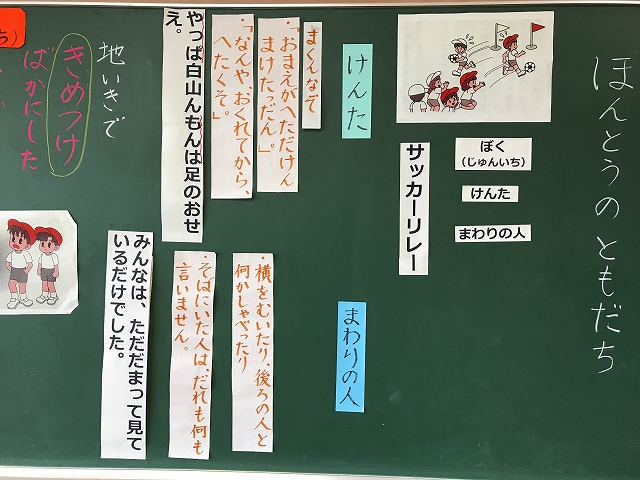 ほんとうのともだち
ぼく
(じゅんいち)
けんた
まわりの人
サッカーリレー
けんた
まくんなぞ
・「おまえがへただけん
まけたっだん。」
・「なんや、おくれてから、
へたくそ。」
やっぱ白山んもんは足のおせ
え。
まわりの人
・横をむいたり、後ろの人と
何かしゃべったり
・そばにいた人は、だれも何も
言いません。
みんなは、ただだまって見て
いるだけでした。
地いきで
きめつけ
ばかにした
ち)